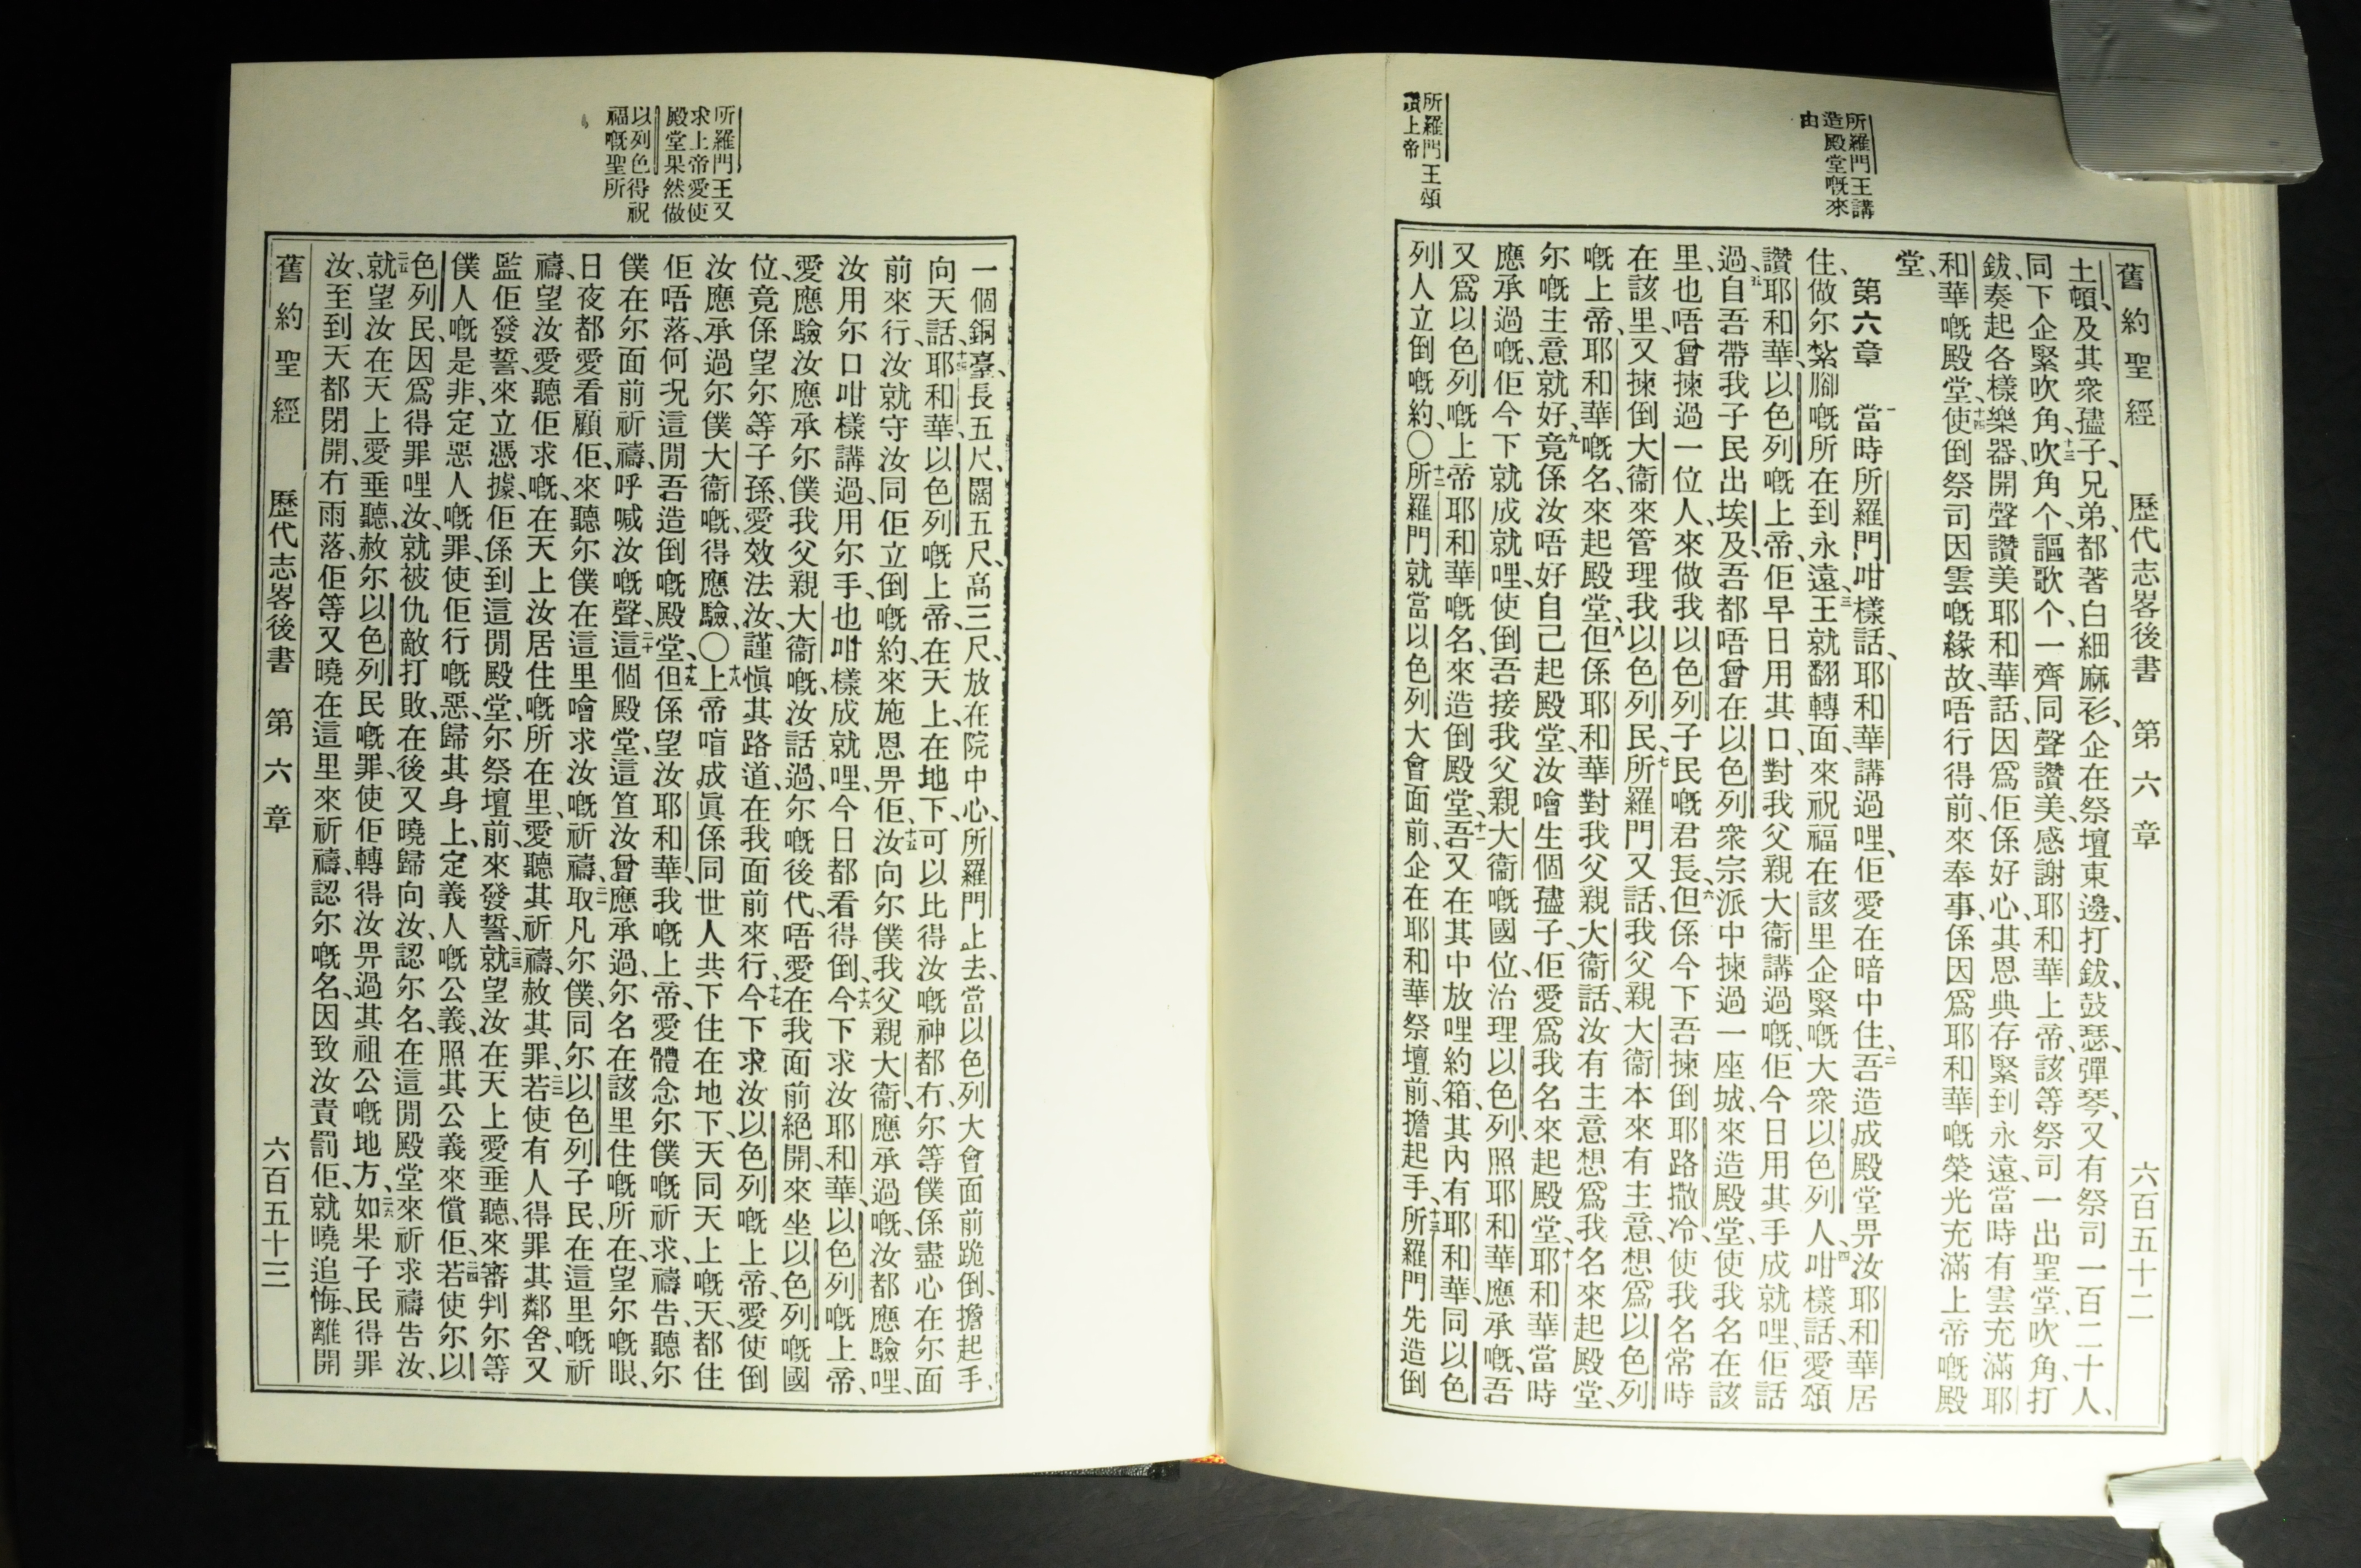 所羅門王講
造殿堂嘅來
由
所羅門王頌
讚上帝
舊約聖經 歷代志畧後書 第六章 六百五十二
土頓、及其衆孻子、兄弟、都著白細麻衫、企在祭壇東邊、打鈸、鼓瑟、彈琴、又有祭司一百二十人、
同下企緊吹角、十三吹角个、謳歌个、一齊同聲讚美感謝耶和華上帝、該等祭司一出聖堂、吹角、打
鈸、奏起各樣樂器、開聲讚美耶和華話、因爲佢係好心、其恩典存緊到永遠、當時有雲充滿耶
和華嘅殿堂、十四使倒祭司因雲嘅緣故、唔行得前、來奉事、係因爲耶和華嘅榮光充滿上帝嘅殿
堂、
第六章 一當時所羅門咁樣話、耶和華講過哩、佢愛在暗中住、二吾造成殿堂畀汝耶和華居
住、做尔紮腳嘅所在到永遠、三王就翻轉面、來祝福在該里企緊嘅大衆以色列人、四咁樣話、愛頌
讚耶和華以色列嘅上帝、佢早日用其口、對我父親大衞講過嘅、佢今日用其手成就哩、佢話
過、五自吾帶我子民出埃及、吾都唔曾在以色列衆宗派中揀過一座城、來造殿堂、使我名在該
里、也唔曾揀過一位人、來做我以色列子民嘅君長、六但係今下吾揀倒耶路撒冷、使我名常時
在該里、又揀倒大衞來管理我以色列民、七所羅門又話、我父親大衞本來有主意、想爲以色列
嘅上帝、耶和華嘅名、來起殿堂、八但係耶和華對我父親大衞話、汝有主意想爲我名來起殿堂、
尔嘅主意就好、九竟係汝唔好自己起殿堂、汝噲生個孻子、佢愛爲我名來起殿堂、十耶和華當時
應承過嘅、佢今下就成就哩、使倒吾接我父親大衞嘅國位、治理以色列、照耶和華應承嘅、吾
又爲以色列嘅上帝耶和華嘅名、來造倒殿堂、十一吾又在其中放哩約箱、其內有耶和華、同以色
列人立倒嘅約、〇十二所羅門就當以色列大會面前、企在耶和華祭壇前、擔起手、十三所羅門先造倒
所羅門王又
求上帝愛使
殿堂果然做
以列色得祝
福嘅聖所
一個銅臺、長五尺、闊五尺、高三尺、放在院中心、所羅門上去、當以色列大會面前跪倒、擔起手、
向天話、十四耶和華、以色列嘅上帝、在天上、在地下、可以比得汝嘅神都冇、尔等僕係盡心在尔面
前來行、汝就守汝同佢立倒嘅約、來施恩畀佢、十五汝向尔僕我父親大衞、應承過嘅、汝都應驗哩、
汝用尔口咁樣講過、用尔手、也咁樣成就哩、今日都看得倒、十六今下求汝耶和華、以色列嘅上帝、
愛應驗汝應承尔僕我父親大衞嘅、汝話過、尔嘅後代、唔愛在我面前絕開、來坐以色列嘅國
位、竟係望尔等子孫、愛效法汝、謹愼其路道、在我面前來行、十七今下求汝以色列嘅上帝、愛使倒
汝應承過尔僕大衞嘅、得應驗、〇十八上帝唷成眞係同世人共下住在地下、天同天上嘅天、都住
佢唔落、何况這間吾造倒嘅殿堂、十九但係望汝耶和華、我嘅上帝、愛體念尔僕嘅祈求、禱告、聽尔
僕在尔面前祈禱、呼喊汝嘅聲、二十這個殿堂、這笪汝曾應承過、尔名在該里住嘅所在、望尔嘅眼、
日夜都愛看顧佢、來聽尔僕在這里噲求汝嘅祈禱、二一取凡尔僕、同尔以色列子民、在這里嘅祈
禱、望汝愛聽佢求嘅、在天上汝居住嘅所在里、愛聽其祈禱、赦其罪、二二若使有人得罪其鄰舍、又
監佢發誓、來立憑據、佢係到這間殿堂、尔祭壇前、來發誓、二三就望汝在天上愛垂聽、來審判尔等
僕人嘅是非、定惡人嘅罪、使佢行嘅惡、歸其身上、定義人嘅公義、照其公義來償佢、二四若使尔以
色列民、因爲得罪哩汝、就被仇敵打敗、在後又曉歸向汝、認尔名、在這間殿堂來祈求禱告汝、
二五就望汝在天上愛垂聽、赦尔以色列民嘅罪、使佢轉得汝畀過其祖公嘅地方、二六如果子民得罪
汝、至到天都閉開、冇雨落、佢等又曉在這里來祈禱、認尔嘅名、因致汝責罰佢、就曉追悔、離開
舊約聖經 歷代志畧後書 第六章 六百五十三